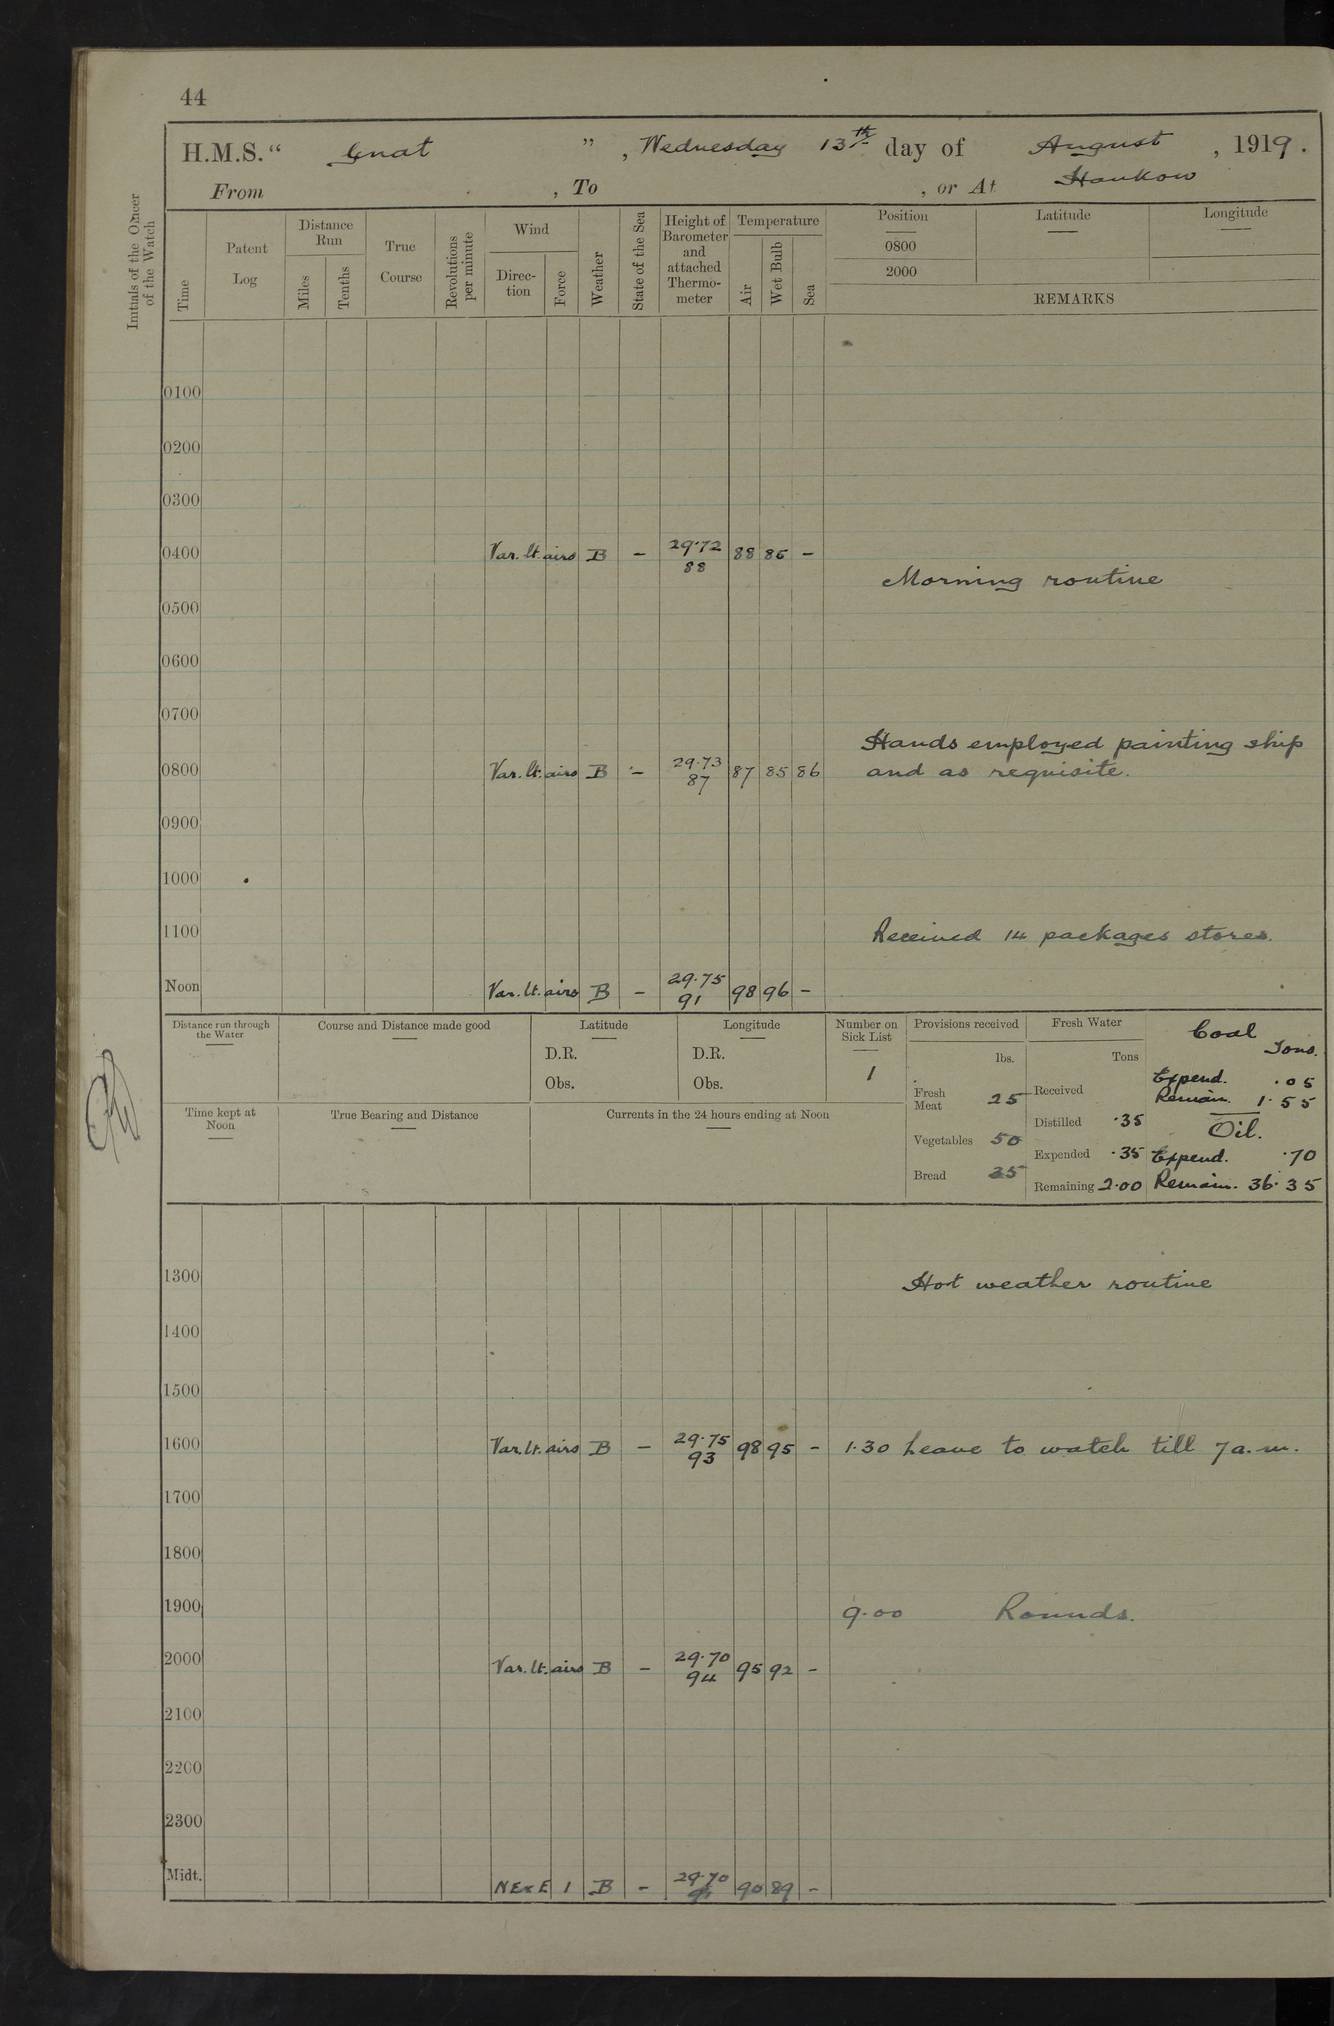 44
H.M.S. “ Gnat ” , Wednesday 13th day of August , 1919.
From , To , or At Hankow
Initials of the Officer of the Watch
Time
Patent Log
Distance Run
Miles
Tenths
True Course
Revolutions per minute
Wind
Direc-tion
Force
Weather
State of the Sea
Height of Barometer and attached Thermo-meter
Temperature
Air
Wet Bulb
Sea
Position Latitude Longitude
0800
2000
REMARKS
0100
0200
0300
0400 Var. lt. airs B – 29.72 88 88 85 –
Morning routine
0500
0600
0700
Hands employed painting ship
0800 Var. lt. airs B – 29.73 87 87 85 86 and as requisite.
0900
1000
1100 Received 14 packages stores.
Noon Var. lt. airs B – 29.75 91 98 96 –
Distance run through the Water
Course and Distance made good
Latitude
D.R.
Obs.
Longitude
D.R.
Obs.
Number on Sick List
1
Provisions received
lbs.
Fresh Meat 25
Vegetables 50
Bread 25
Fresh Water
Tons
Received
Distilled .35
Expended .35
Remaining 2.00
Coal
Tons.
Expend. .05
Remain. 1.55
Oil.
Expend. .70
Remain. 36.35
Time kept at Noon
True Bearing and Distance
Currents in the 24 hours ending at Noon
1300 Hot weather routine
1400
1500
1600 Var. lt. airs B – 29.75 93 98 95 – 1.30 Leave to watch till 7 a.m.
1700
1800
1900 9.00 Rounds.
2000 Var. lt. airs B – 29.70 94 95 92 –
2100
2200
2300
Midt. NExE 1 B – 29.70 90 89 –